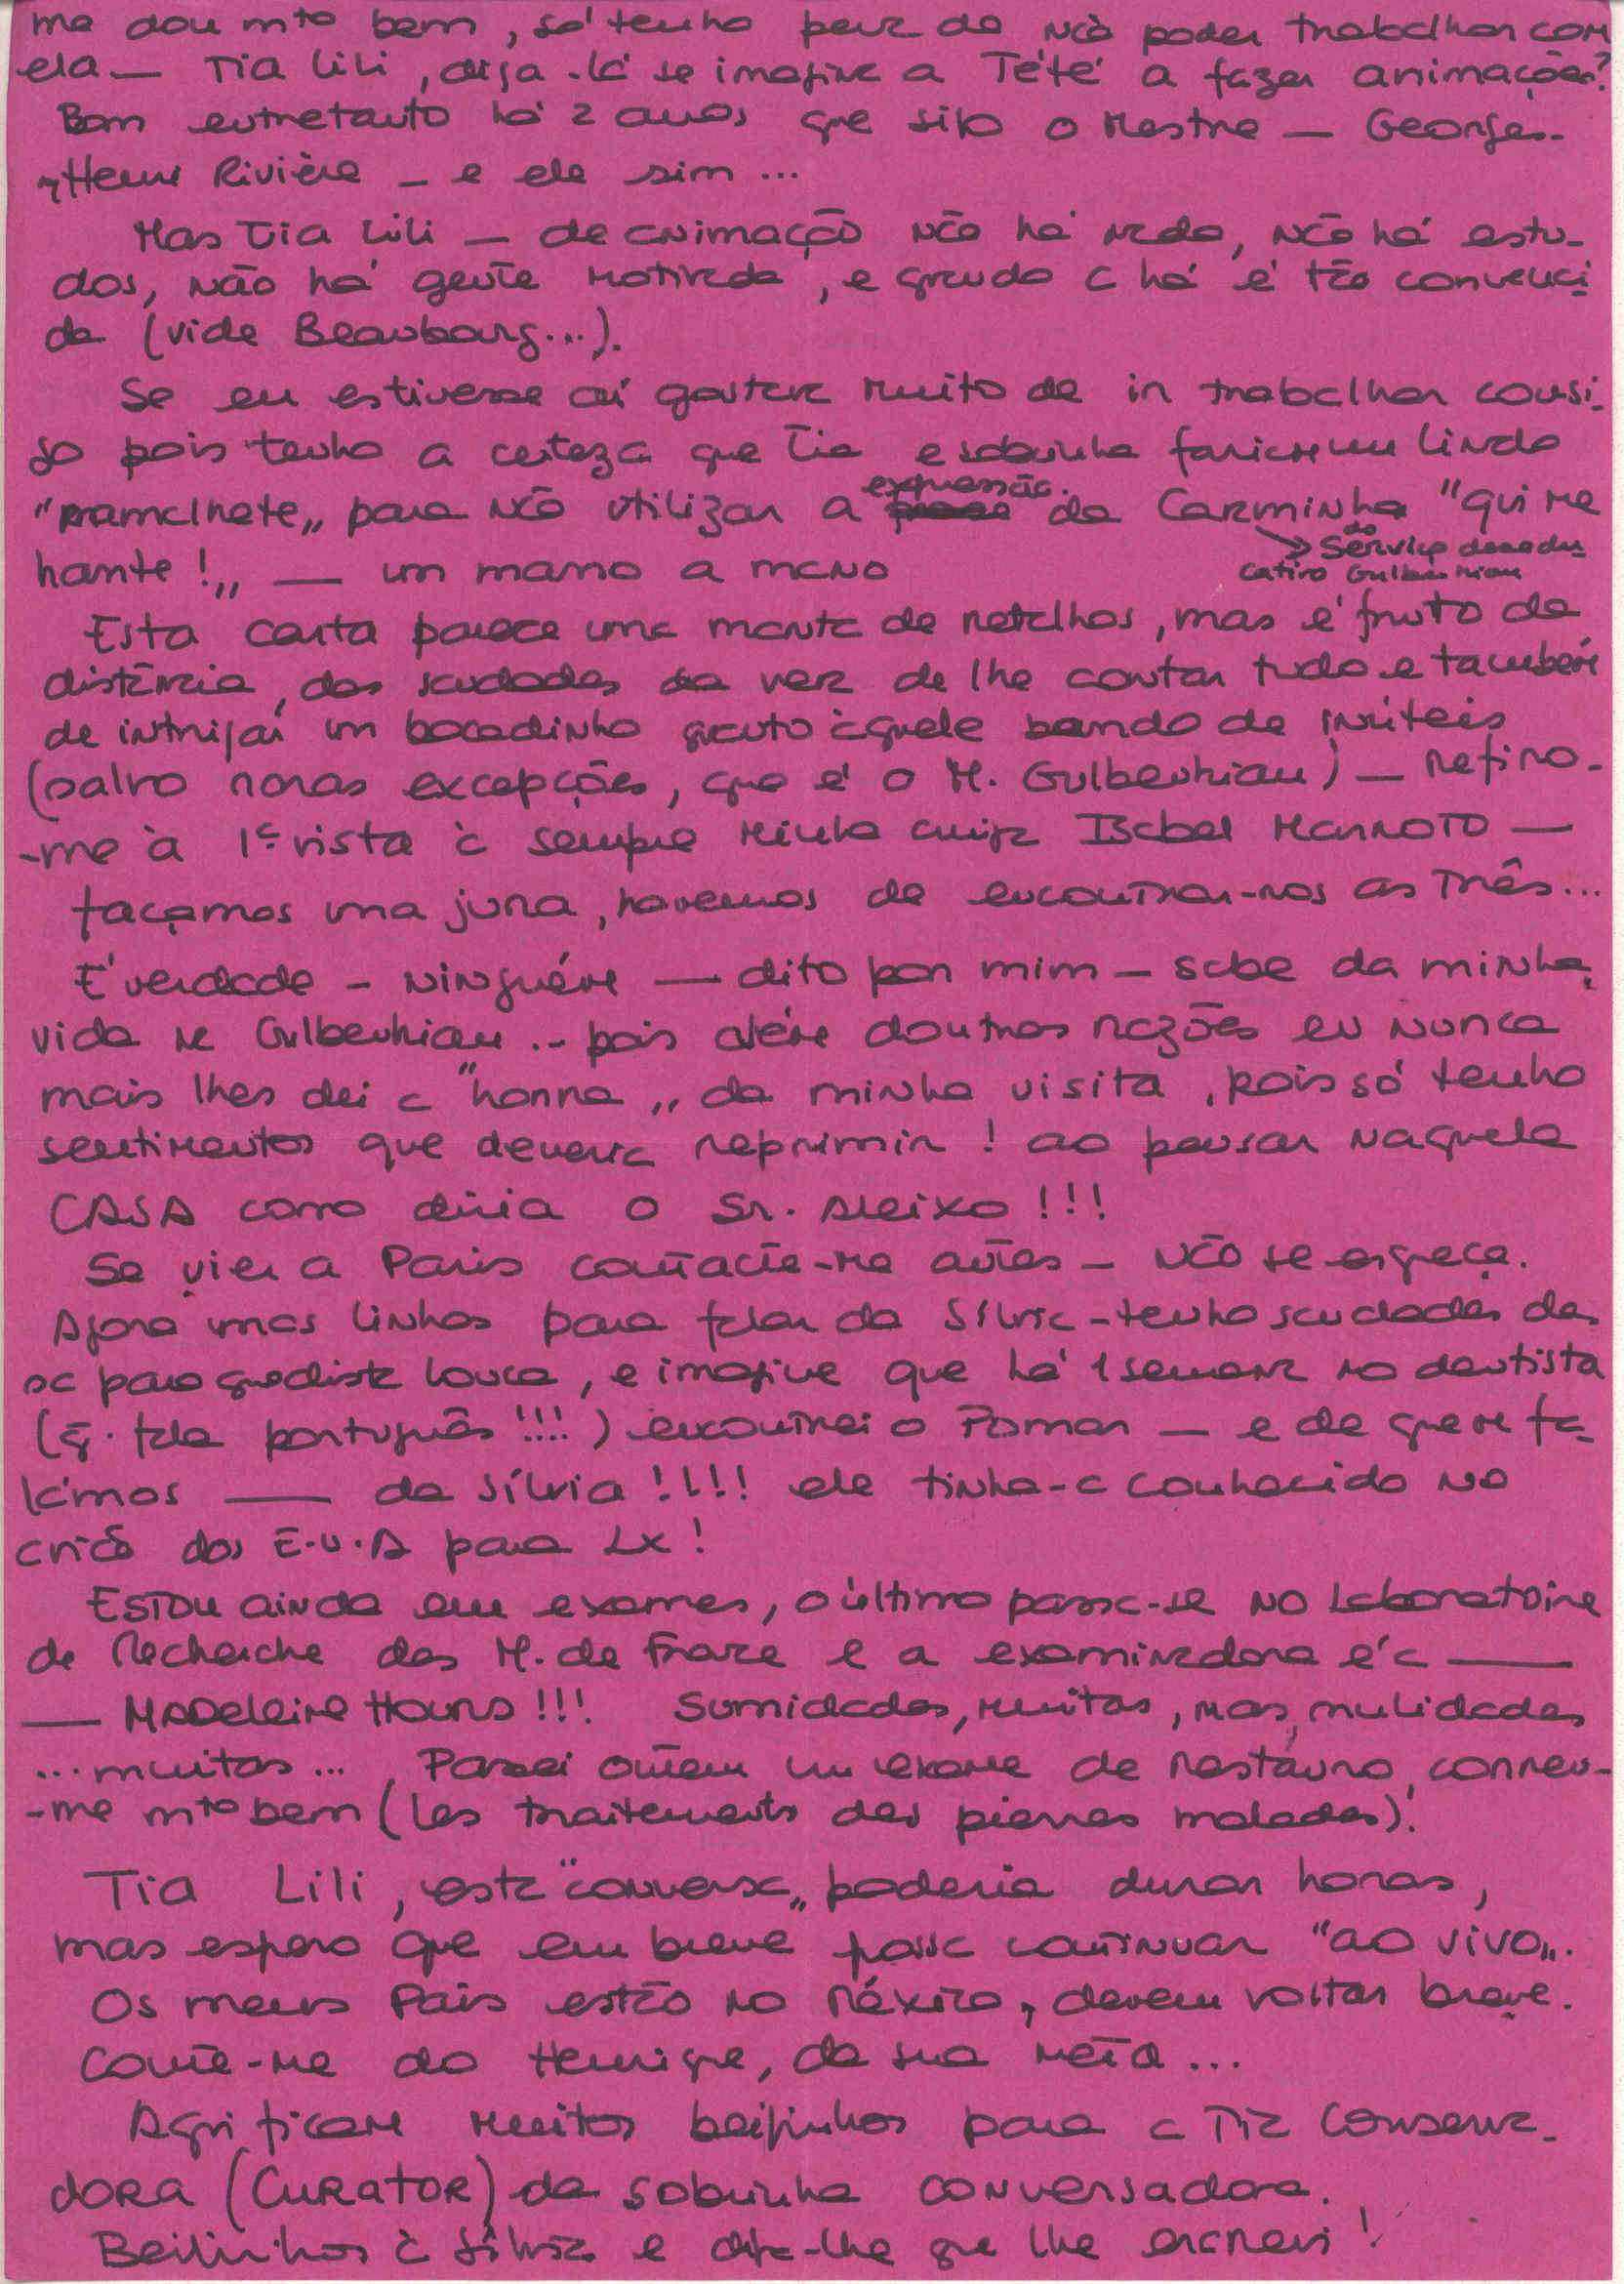 me dou mto bem, só tenho pena de não poder trabalhar com
ela — Tia Lili, diga-lá se imagina a Tété a fazer animações?
Bom entretanto há 2 anos que sigo o Mestre — Georges-
Henri Rivière — e ele sim ...
Mas Tia Lili — de animação não há nada, não há estu-
dos, não há gente motivada, e quando a há é tão convenci
da (vide Beaubourg...).
Se eu estivesse aí gostava muito de ir trabalhar consi-
go pois tenho a certeza que Tia e sobrinha fariam um lindo
"ramalhete„ para não utilizar a expressão da Carminha "qui me
→ do Serviço de edu
hante!„ — um mano a mano
cativo Gulbenkian
Esta carta parece uma manta de retalhos, mas é fruto da
distância, das saudades de lhe contar tudo e também
de intrigar um bocadinho quanto àquele bando de inúteis
(salvo raras excepções, que é o M. Gulbenkian) — refiro-
-me à 1ª vista à sempre minha amiga Isabel Marroto —
façamos uma jura, havemos de encontrar-nos as três...
É verdade — ninguém — dito por mim — sabe da minha
vida na Gulbenkian .. pois além doutras razões eu nunca
mais lhes dei a "honra„ da minha visita, pois só tenho
sentimentos que deveria reprimir! ao pensar naquela
CASA como diria o Sr. Aleixo!!!
Se vier a Paris contacte-me antes — não se esqueça.
Agora umas linhas para falar da Sílvia — tenho saudades des
sa paraquedista louca, e imagine que há 1 semana no dentista
(q. fala português!!!!) encontrei o Pomar — e de quem fa-
lámos — da Sílvia!!!! ele tinha-a conhecido no
avião dos E.U.A para Lx!
Estou ainda em exames, o último passa-se no Laboratoire
de Recherche des M. de France e a examinadora é a —
— Madeleine Hours!!! Sumidades, muitas, mas nulidades
... muitas ... Passei ontem um exame de restauro, correu-
-me mto bem (les traitements des pierres malades)!
Tia Lili, esta "conversa„ poderia durar horas,
mas espero que em breve possa continuar "ao vivo„.
Os meus Pais estão no México, devem voltar breve.
Conte-me do Henrique, da sua neta ...
Aqui ficam muitos beijinhos para a Tia Conserva-
dora (Curator) da sobrinha conversadora.
Beijinhos à Sílvia e diga-lhe que lhe escrevi!